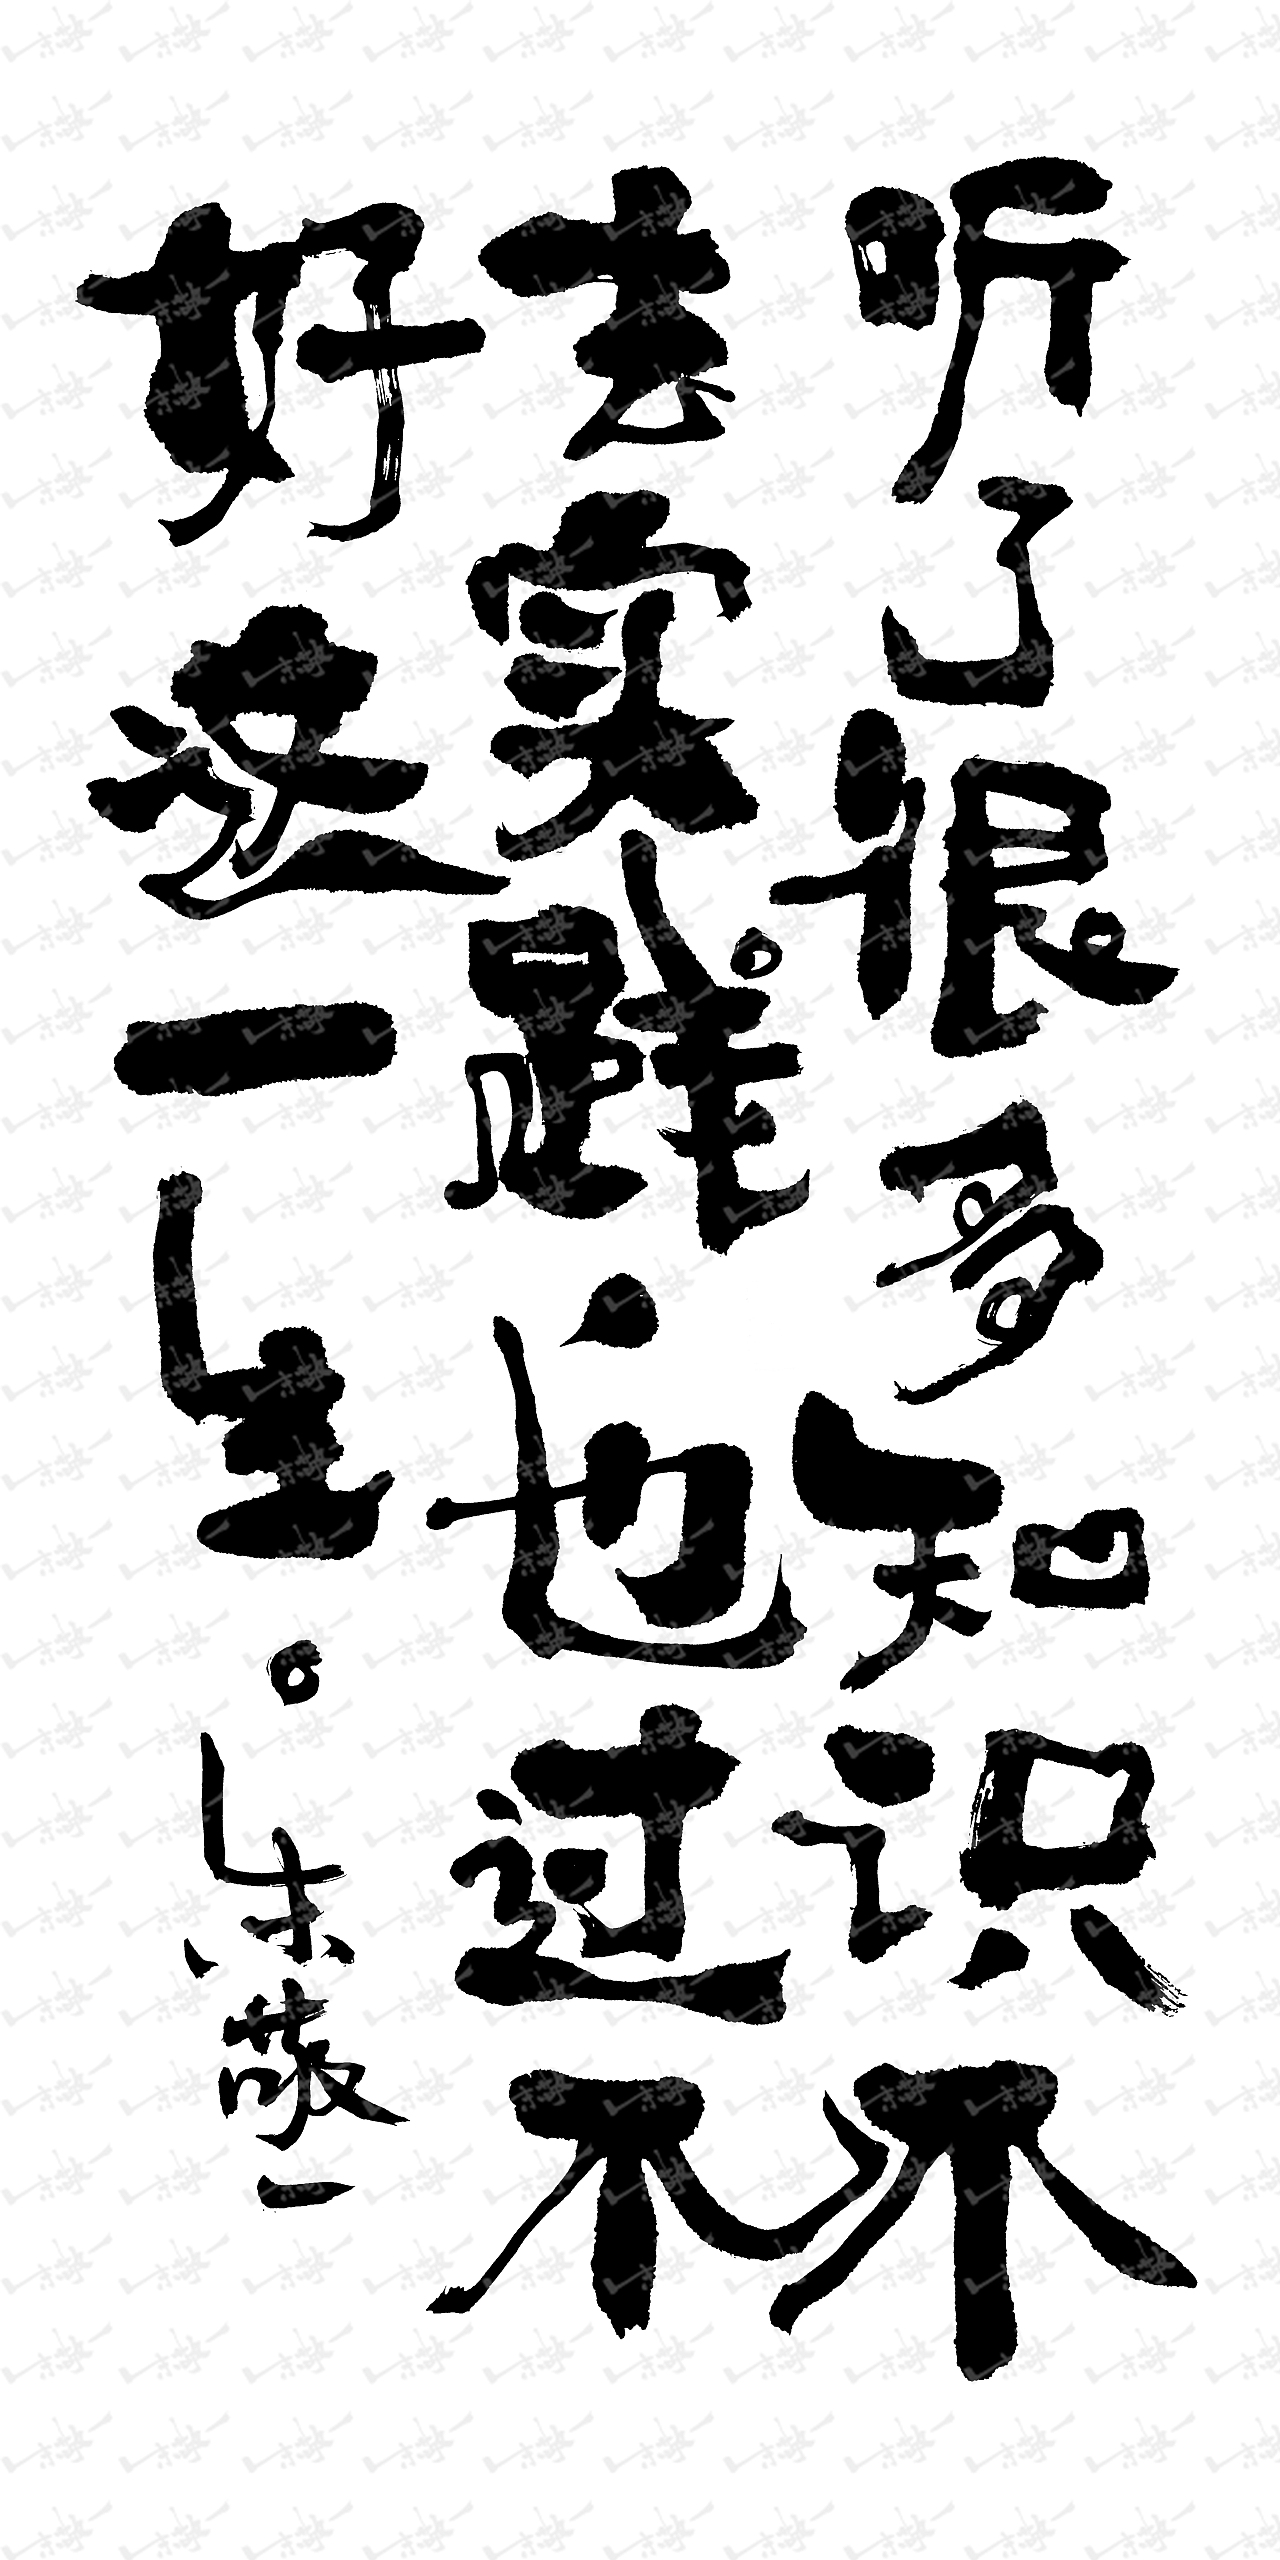 听了很多知识不
去实践也过不
好这一生。朱敬一